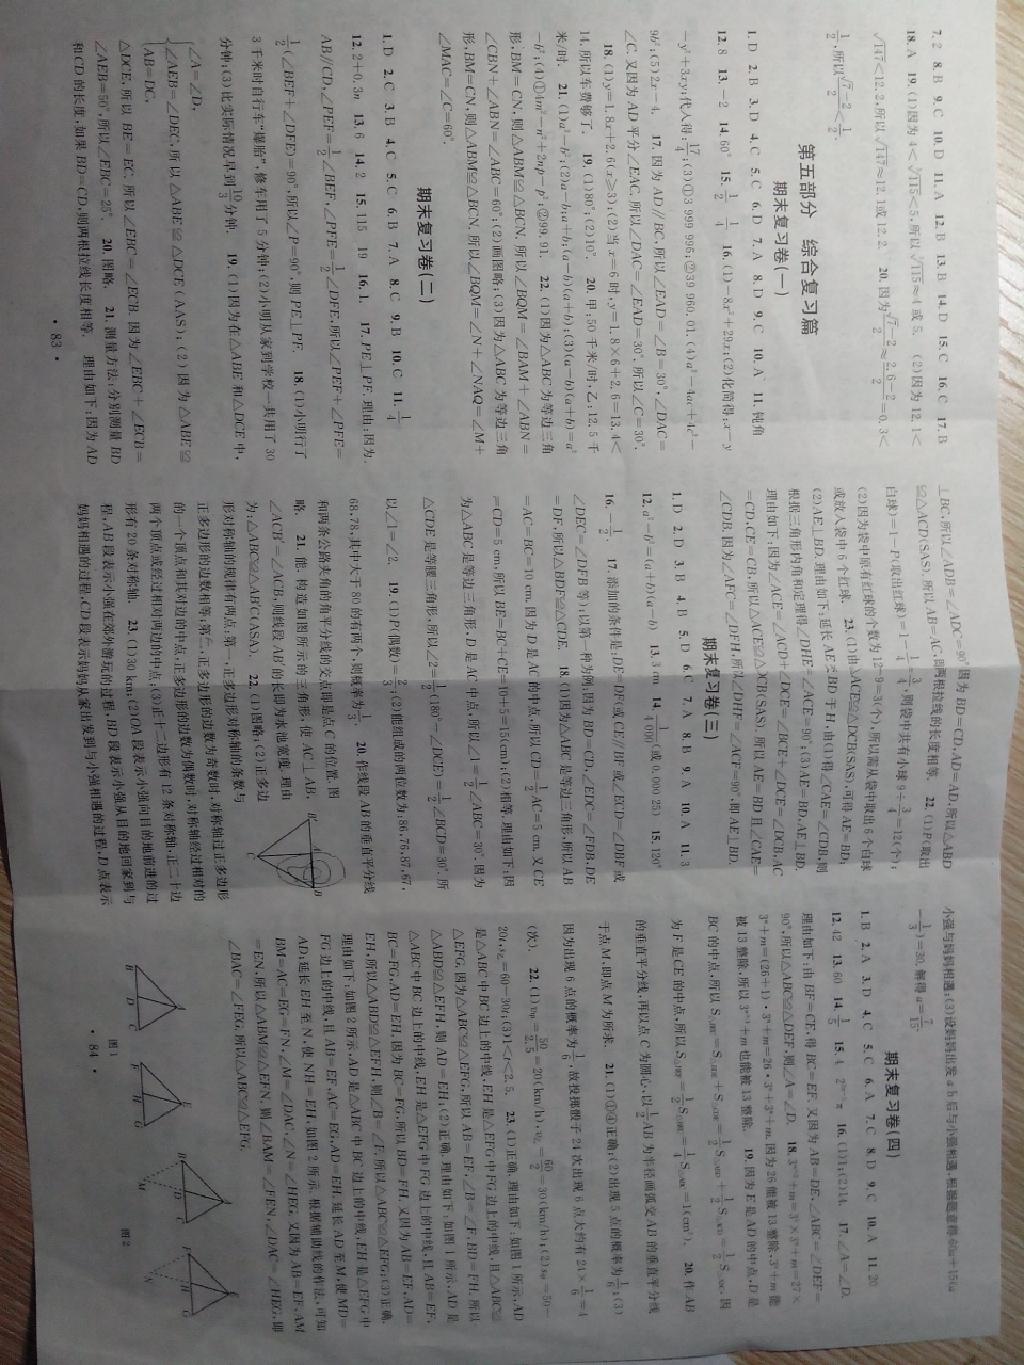 7. 2 8. B 9. C 10. D 11. A 12. B 13. B 14. D 15. C 16. C 17. B
18. A 19. (1)因为 4<∛115<5,所以 ∛115≈4 或 5. (2)因为 12.1<
√147<12.2,所以 √147≈12.1 或 12.2. 20. 因为
第五部分 综合复习篇
期末复习卷(一)
1. D 2. B 3. D 4. C 5. C 6. D 7. A 8. D 9. C 10. A 11. 钝角
12. 8 13. -2 14. 60° 15. 1/2 1/4 16. (1)-8x²+29x;(2)化简得:x-y
9b²;(5)2x-4. 17. 因为 AD∥BC,所以∠EAD=∠B=30°,∠DAC=
∠C. 又因为 AD 平分∠EAC,所以∠DAC=∠EAD=30°. 所以∠C=30°.
18. (1)y=1.8x+2.6(x≥3);(2)当 x=6 时,y=1.8×6+2.6=13.4<
14. 所以车费够了. 19. (1)80°;(2)10°. 20. 甲:50 千米/时,乙:12.5 千
米/时. 21. (1)a²-b²;(2)a-b;a+b;(a-b)(a+b);(3)(a-b)(a+b)=a²
-b²;(4)①4m²-n²+2np-p²;②99.91. 22. (1)因为△ABC 为等边三角
形,BM=CN,则△ABM≌△BCN. 所以∠BQM=∠BAM+∠ABN=
∠CBN+∠ABN=∠ABC=60°;(2)画图略;(3)因为△ABC 为等边三角
形,BM=CN,则△ABM≌△BCN. 所以∠BQM=∠N+∠NAQ=∠M+
∠MAC=∠C=60°.
期末复习卷(二)
1. D 2. C 3. B 4. C 5. C 6. B 7. A 8. C 9. B 10. C 11. 1/4
12. 2+0.3n 13. 6 14. 2 15. 115 19 16. 1. 17. PE⊥PF. 理由:因为.
AB∥CD,∠PEF=1/2∠BEF,∠PFE=1/2∠DFE,所以∠PEF+∠PFE=
1/2(∠BEF+∠DFE)=90°,所以∠P=90°,则 PE⊥PF. 18. (1)小明行了
3 千米时自行车“爆胎”,修车用了 5 分钟;(2)小明从家到学校一共用了 30
分钟;(3)比实际情况早到10/3分钟. 19. (1)因为在△ABE 和△DCE 中,
∠A=∠D,
∠AEB=∠DEC,所以△ABE≌△DCE(AAS);(2)因为△ABE≌
AB=DC,
△DCE,所以 BE=EC,所以∠EBC=∠ECB. 因为∠EBC+∠ECB=
∠AEB=50°,所以∠EBC=25°. 20. 图略. 21. 测量方法:分别测量 BD
和 CD 的长度,如果 BD=CD,则两根拉线长度相等. 理由如下:因为 AD
· 83 ·
⊥BC,所以∠ADB=∠ADC=90°因为 BD=CD,AD=AD,所以△ABD
≌△ACD(SAS),所以 AB=AC,即两根拉线的长度相等. 22. (1)P(取出
白球)=1-P(取出红球)=1-1/4=3/4,则袋中共有小球 9÷3/4=12(个);
(2)因为袋中原有红球的个数为 12-9=3(个),所以需从袋中取出 6 个白球
或放入袋中 6 个红球. 23. (1)由△ACE≌△DCB(SAS),可得 AE=BD;
(2)AE⊥BD. 理由如下:延长 AE交BD 于 H,由(1)得∠CAE=∠CDB,则
根据三角形内角和定理得∠DHE=∠ACE=90°;(3)AE=BD,AE⊥BD.
理由如下:因为∠ACE=∠ACD+∠DCE=∠BCE+∠DCE=∠DCB,AC
=CD,CE=CB,所以△ACE≌△DCB(SAS),所以 AE=BD 且∠CAE=
∠CDB. 因为∠AFC=∠DFH,所以∠DHF=∠ACF=90°,即 AE⊥BD.
期末复习卷(三)
1. D 2. D 3. B 4. B 5. D 6. C 7. A 8. B 9. A 10. A 11. 3
12. a²-b²=(a+b)(a-b) 13. 3 cm 14. 1/4 000(或 0.000 25) 15. 120°
16. -1/2. 17. 添加的条件是:DE=DF(或 CE∥BF 或∠ECD=∠DBF 或
∠DEC=∠DFB 等);以第一种为例:因为 BD=CD,∠EDC=∠FDB,DE
=DF,所以△BDF≌△CDE. 18. (1)因为△ABC 是等边三角形,所以 AB
=AC=BC=10 cm. 因为 D 是 AC 的中点,所以 CD=1/2AC=5 cm. 又 CE
=CD=5 cm,所以 BE=BC+CE=10+5=15(cm);(2)相等. 理由如下:因
为△ABC 是等边三角形,D 是 AC 中点,所以∠1=1/2∠ABC=30°. 因为
△CDE 是等腰三角形,所以∠2=1/2(180°-∠DCE)=1/2∠BCD=30°. 所
以∠1=∠2. 19. (1)P(偶数)=2/3;(2)能组成的两位数为:86,76,87,67,
68,78,其中大于 80 的有两个,则概率为1/3. 20. 作线段 AB 的垂直平分线
和两条公路夹角的角平分线的交点即是点 C 的位置. 图
略. 21. 能. 构造如图所示的三角形,使 AC⊥AB,
∠ACB′=∠ACB,则线段 AB′的长即为水池宽度. 理由
为:△ABC≌△AB′C(ASA). 22. (1)图略;(2)正多边
形对称轴的规律有两点:第一,正多边形对称轴的条数与
正多边形的边数相等;第二,正多边形的边数为奇数时,对称轴过正多边形
的一个顶点和其对边的中点,正多边形的边数为偶数时,对称轴经过相对的
两个顶点或经过相对两边的中点;(3)正十二边形有 12 条对称轴,正二十边
形有 20 条对称轴. 23. (1)30 km;(2)OA 段表示小强向目的地前进的过
程,AB 段表示小强在郊外游玩的过程,BD 段表示小强从目的地回家到与
妈妈相遇的过程,CD 段表示妈妈从家出发到与小强相遇的过程,D 点表示
小强与妈妈相遇;(3)设妈妈出发 a h 后与小强相遇,根据题意得
期末复习卷(四)
1. B 2. A 3. D 4. C 5. C 6. A 7. C 8. D 9. C 10. A 11. 20
12. 42 13. 60 14. 1/5 15. 4 16. (1)1;(2)14. 17. ∠A=∠D.
理由如下:由 BF=CE,得 BC=EF. 又因为 AB=DE,∠ABC=∠DEF=
90°,所以△ABC≌△DEF,则∠A=∠D. 18. 3ⁿ⁺³+m=3³×3ⁿ+m=27×
3ⁿ+m=(26+1)·3ⁿ+m=26·3ⁿ+3ⁿ+m. 因为 26 能被 13 整除,3ⁿ+m 能
被 13 整除,所以 3ⁿ⁺³+m 也能被 13 整除. 19. 因为 E 是 AD 的中点,D 是
为 F 是 CE 的中点,所以 20. 作 AB
的垂直平分线,再以点 C 为圆心,以1/2AB 为半径画弧交 AB 的垂直平分线
于点 M,即点 M 为所求. 21. (1)①④正确;(2)出现 5 点的概率为1/6;(3)
因为出现 6 点的概率为1/6,故投掷骰子 24 次出现 6 点大约有 24×1/6=4
(次). 22.
23. (1)正确. 理由如下:如图 1 所示,AD
是△ABC 中 BC 边上的中线,EH 是△EFG 中 FG 边上的中线,且△ABC≌
△EFG,因为△ABC≌△EFG,所以 AB=EF,∠B=∠F,BD=FH. 所以
△ABD≌△EFH,则 AD=EH. (2)正确. 理由如下:如图 1 所示,AD 是
△ABC 中 BC 边上的中线,EH 是△EFG 中 FG 边上的中线,且 AB=EF,
BC=FG,AD=EH. 因为 BC=FG,所以 BD=FH. 又因为 AB=EF,AD=
EH,所以△ABD≌△EFH,则∠B=∠F. 所以△ABC≌△EFG;(3)正确.
理由如下:如图 2 所示,AD 是△ABC 中 BC 边上的中线,EH 是△EFG 中
FG 边上的中线,且 AB=EF,AC=EG,AD=EH. 延长 AD 至 M,使 MD=
AD;延长 EH 至 N,使 NH=EH,如图 2 所示. 根据辅助线的作法,可知
BM=AC=EG=FN,∠M=∠DAC,∠N=∠HEG. 又因为 AB=EF,AM
=EN,所以△ABM≌△EFN,则∠BAM=∠FEN,∠DAC=∠HEG,即
∠BAC=∠FEG,所以△ABC≌△EFG.
图 1
图 2
· 84 ·